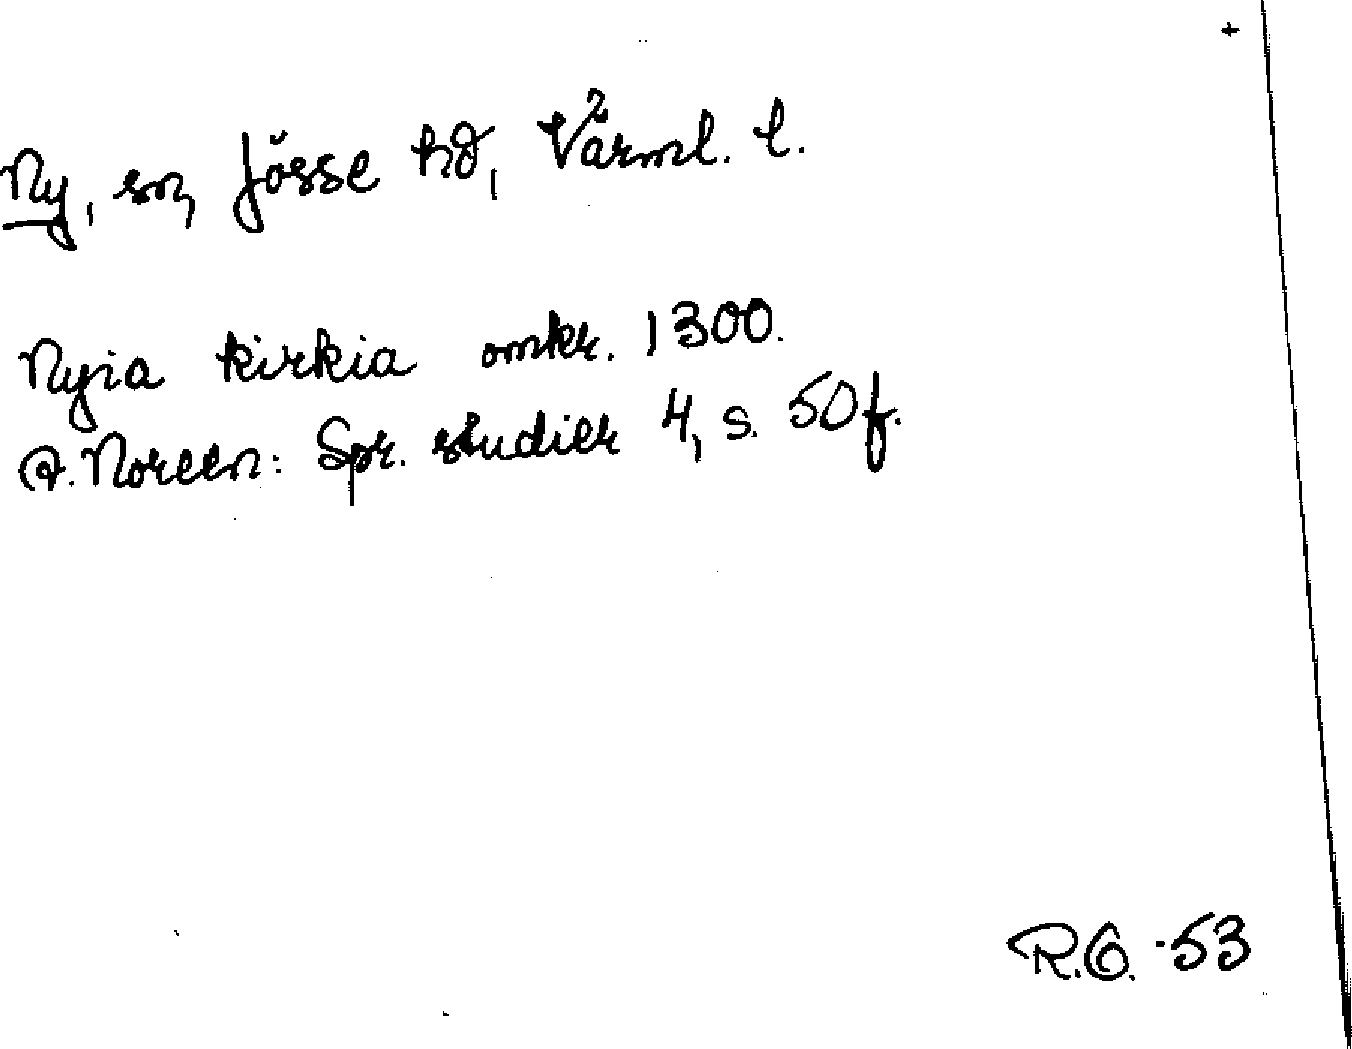 Ny, sn, Jösse hd, Värml. l.
Nyia kirkia omkr. 1300.
A. Noreen: Spr. studier 4, s. 50 f.
R.O. -53